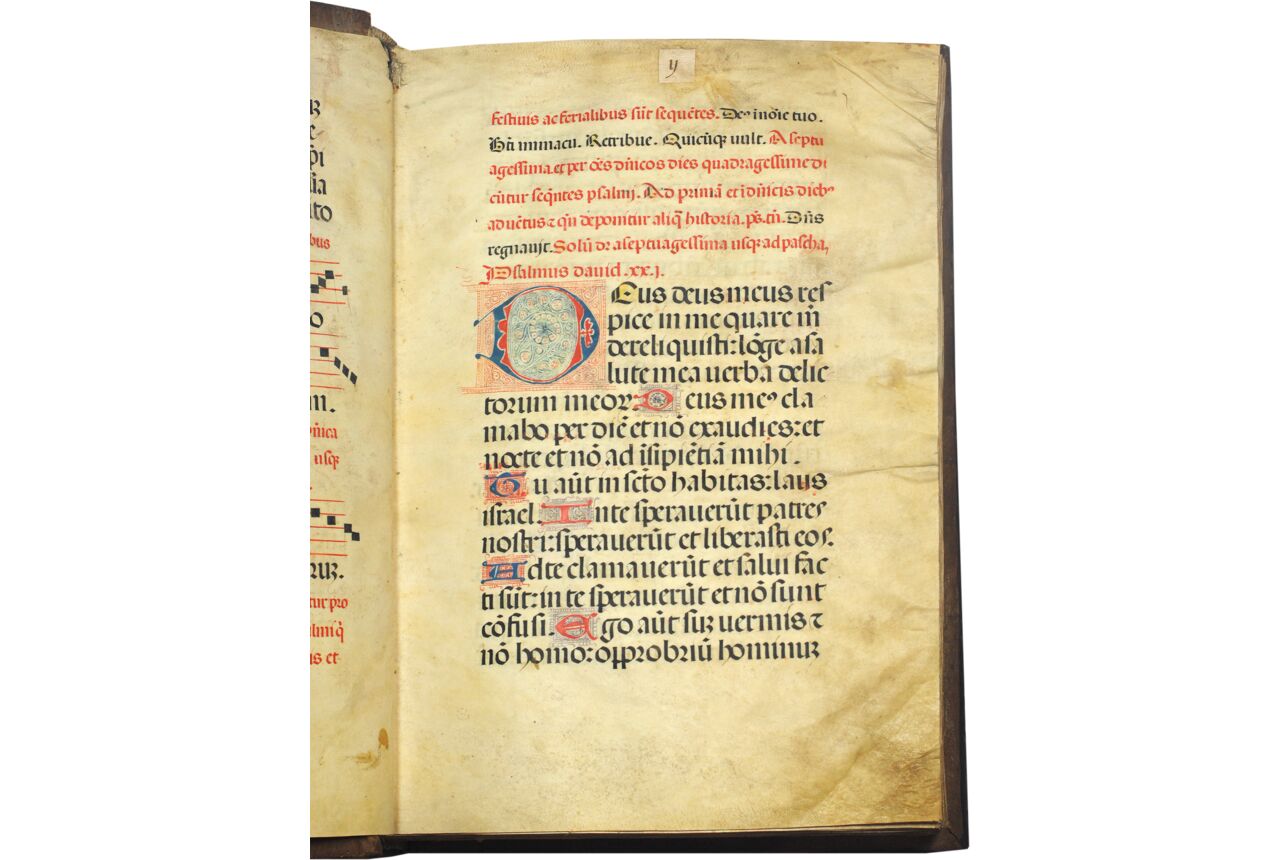 ꝝ
e
pi
sia
ito
ibus
o
m.
mĩca
usqꝫ
ruꝝ.
tur pro
almi q̃
is et
y
festiuis ac ferialibus sũt sequẽtes. Deꝰ ĩ noĩe tuo.
Bñ immacu. Retribue. Quicũqꝫ uult. A septu
agessima. et per oẽs dñicos dies quadragessime di
cũtur seqñtes psalmij. Ad primã et ĩ dñicis diebꝰ
aduẽtus ⁊ qñ deponitur aliq̃ historia. ps. tm̃. Dñs
regnauit. Solũ dꝛ a septuagessima usqꝫ ad pascha,
Psalmus dauid. xx.j.
DEus deus meus res
pice in me quare m̃
dereliquisti: lõge a sa
lute mea uerba delic
torum meoꝝ. Deus meꝰ cla
mabo per diẽ et nõ exaudies: et
nocte et nõ ad ĩsipiẽtiã mihi.
Tu aũt in scto habitas: laus
israel. In te sperauerũt patres
nostri: sperauerũt et liberasti eos.
Ad te clamauerũt et salui fac
ti sũt: in te sperauerũt et nõ sunt
cõfusi. Ego aũt suꝫ uermis ⁊
nõ homo: opprobriũ hominuꝫ